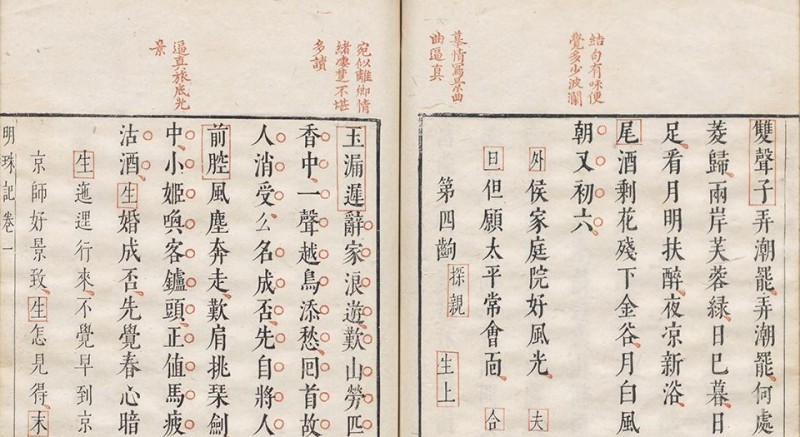 結句有味便
覺多少波瀾
摹情寫景曲
曲逼真
雙聲子弄潮罷弄潮罷何處
菱歸兩岸芙蓉綠日已暮日
足看月明扶醉夜凉新浴
尾酒剩花殘下金谷月白風
朝又初六
外侯家庭院好風光夫
日但願太平常會面合
第四齣 探親 生上
宛似離鄉情
緒凄楚不堪
多讀
逼真旅底光
景
玉漏遲辭家浪遊歎山勞匹
香中一聲越鳥添愁回首故
人消受么名成否先自將人
前腔風塵奔走歎肩挑琴劍
中小姬喚客鑪頭正值馬疲
沽酒生婚成否先覺春心暗
生迤逞行來不覺早到京
京師好景致生怎見得末
明珠記卷一